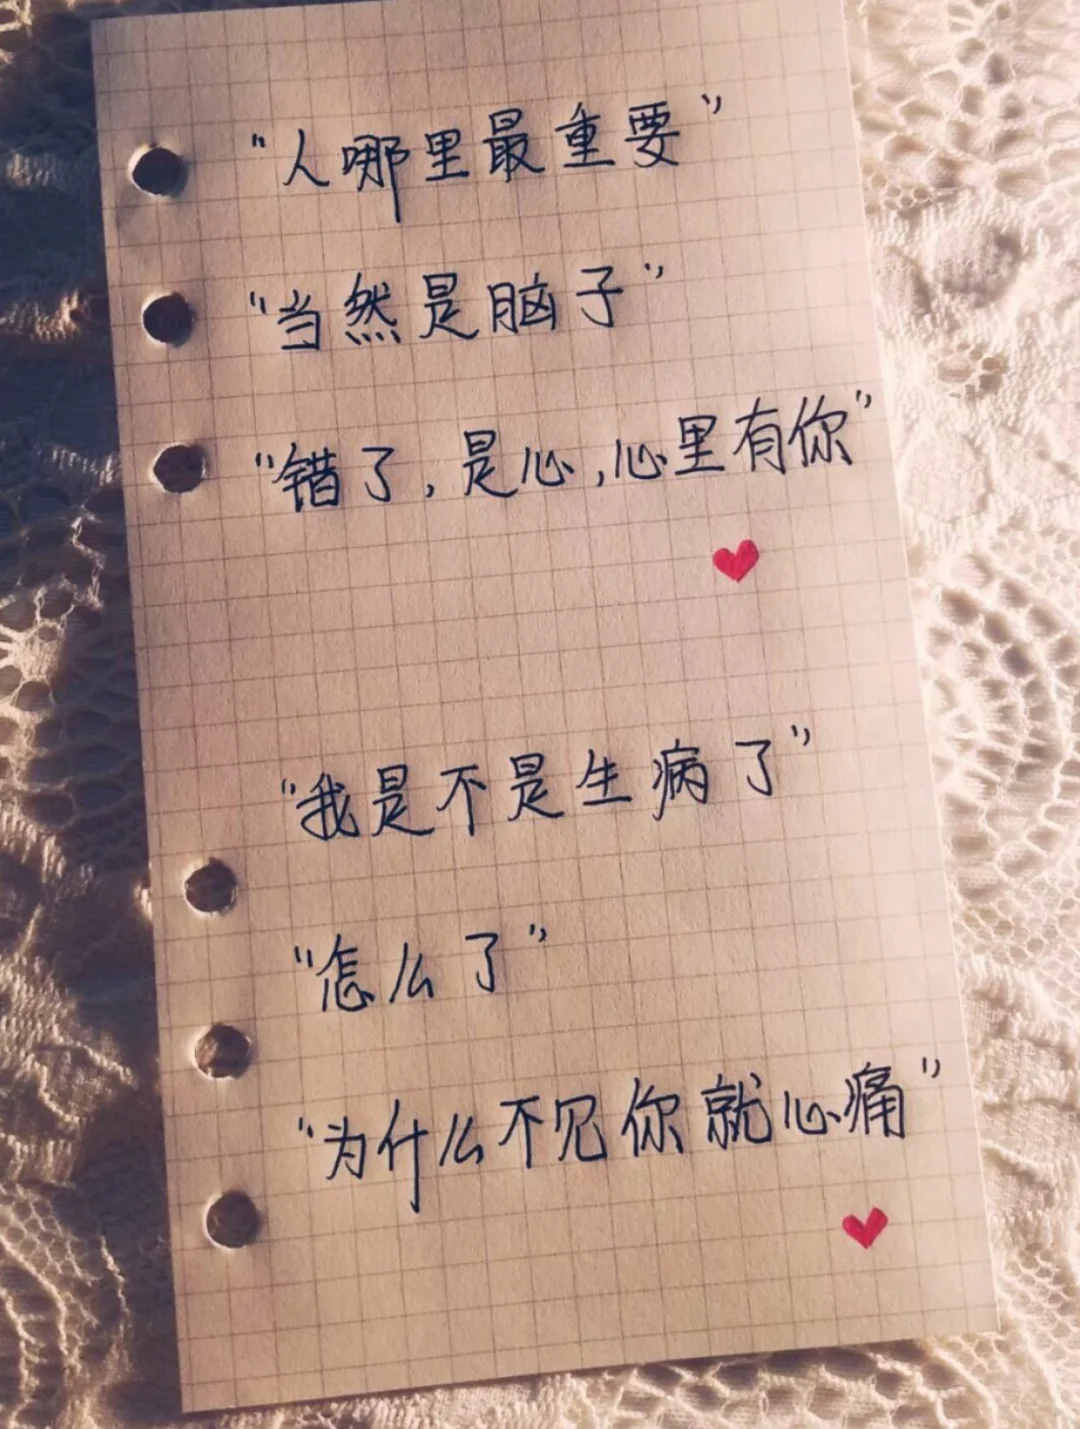 “人哪里最重要”
“当然是脑子”
“错了，是心，心里有你”
“我是不是生病了”
“怎么了”
“为什么不见你就心痛”